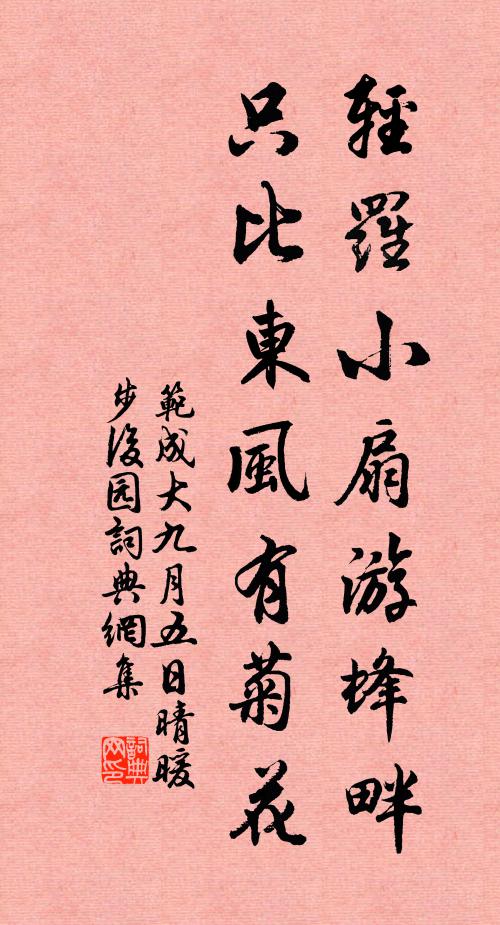 輕羅小扇游蜂畔
只比東風有菊花
範成大九月五日晴暖
步後园詞典網集
詞典网印